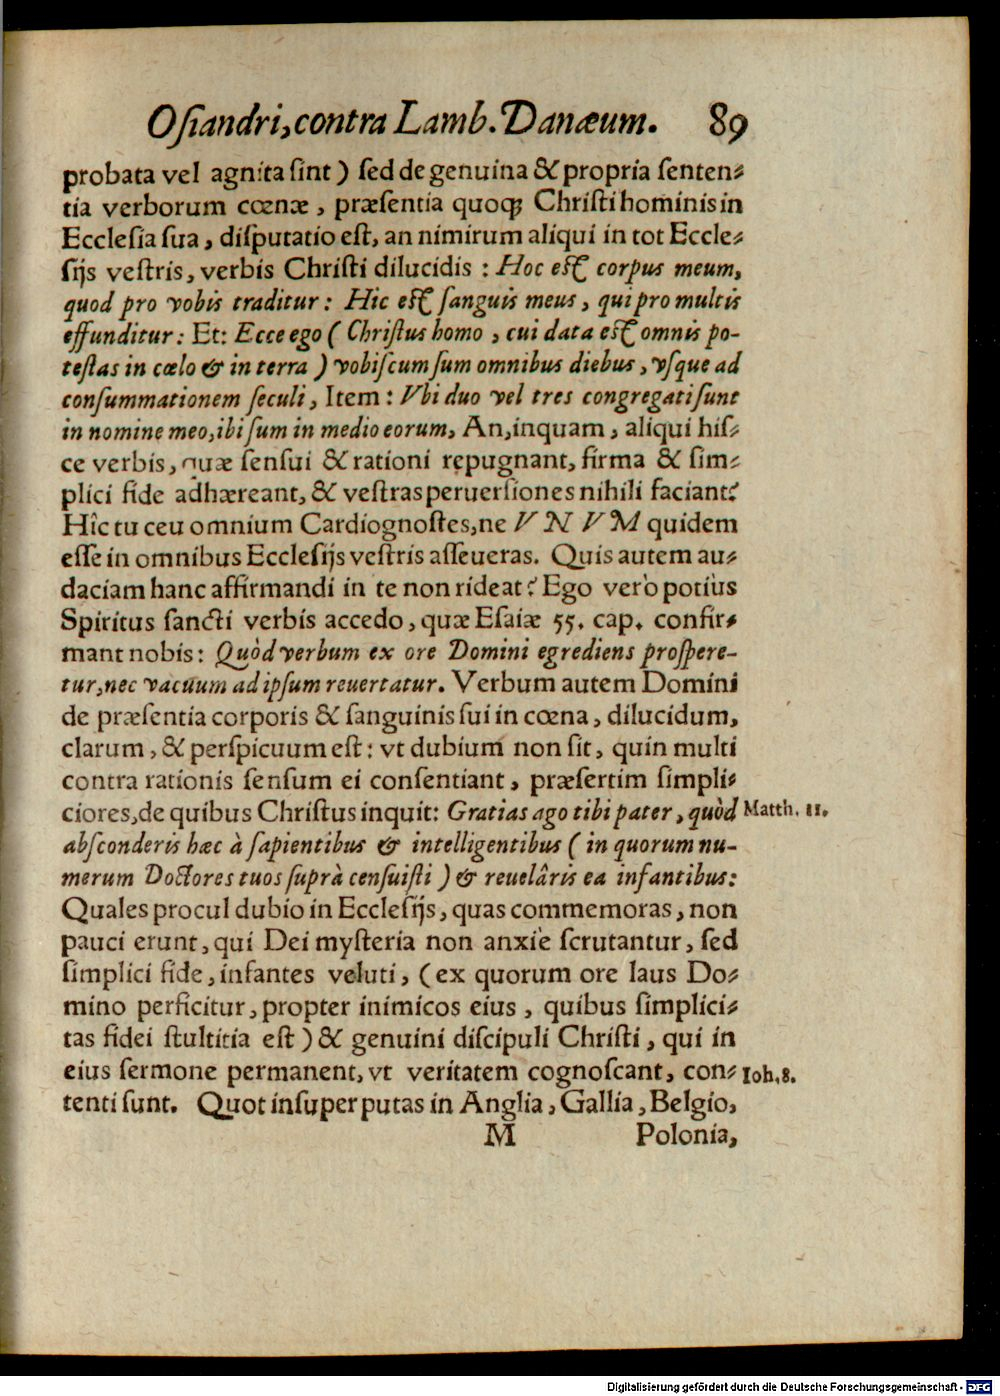 Oſiandri, contra Lamb. Danæum. 89
probata vel agnita ſint) ſed de genuina & propria ſenten-
tia verborum cœnæ, præſentia quoq; Chriſti hominis in
Eccleſia ſua, diſputatio eſt, an nimirum aliqui in tot Eccle-
ſijs veſtris, verbis Chriſti dilucidis: Hoc eſt corpus meum,
quod pro vobis traditur: Hic eſt ſanguis meus, qui pro multis
effunditur: Et: Ecce ego (Chriſtus homo, cui data eſt omnis po-
teſtas in cœlo & in terra) vobiſcum ſum omnibus diebus, vſque ad
conſummationem ſeculi, Item: Vbi duo vel tres congregati ſunt
in nomine meo, ibi ſum in medio eorum, An, inquam, aliqui hiſ-
ce verbis, quæ ſenſui & rationi repugnant, firma & ſim-
plici fide adhæreant, & veſtras peruerſiones nihili faciant?
Hîc tu ceu omnium Cardiognoſtes, ne VNVM quidem
eſſe in omnibus Eccleſijs veſtris aſſeueras. Quis autem au-
daciam hanc affirmandi in te non rideat? Ego verò potiùs
Spiritus ſancti verbis accedo, quæ Eſaiæ 55. cap. confir-
mant nobis: Quòd verbum ex ore Domini egrediens proſpere-
tur, nec vacuum ad ipſum reuertatur. Verbum autem Domini
de præſentia corporis & ſanguinis ſui in cœna, dilucidum,
clarum, & perſpicuum eſt: vt dubium non ſit, quin multi
contra rationis ſenſum ei conſentiant, præſertim ſimpli-
ciores, de quibus Chriſtus inquit: Gratias ago tibi pater, quòd Matth. 11.
abſconderis hæc à ſapientibus & intelligentibus (in quorum nu-
merum Doctores tuos ſuprà cenſuiſti) & reuelâris ea infantibus:
Quales procul dubio in Eccleſijs, quas commemoras, non
pauci erunt, qui Dei myſteria non anxiè ſcrutantur, ſed
ſimplici fide, infantes veluti, (ex quorum ore laus Do-
mino perficitur, propter inimicos eius, quibus ſimplici-
tas fidei ſtultitia eſt) & genuini diſcipuli Chriſti, qui in
eius ſermone permanent, vt veritatem cognoſcant, con- Ioh. 8.
tenti ſunt. Quot inſuper putas in Anglia, Gallia, Belgio,
M Polonia,
Digitalisierung gefördert durch die Deutsche Forschungsgemeinschaft - DFG